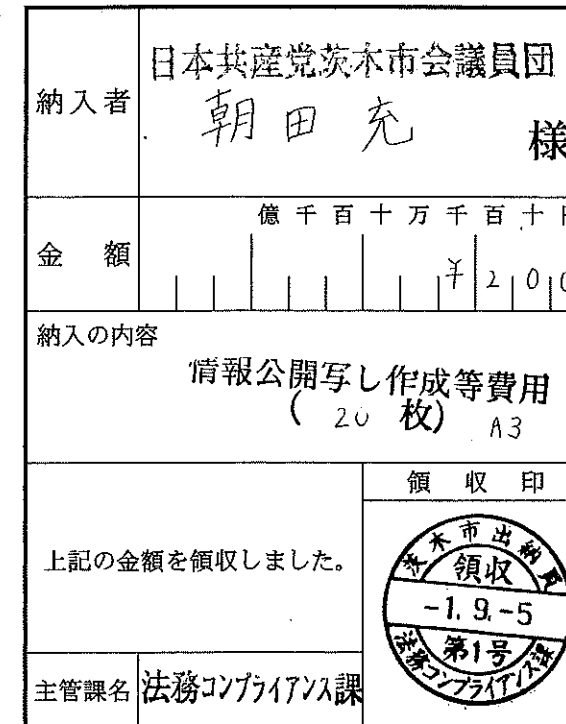 納入者
日本共産党茨木市会議員団
朝田 充
様
億千百十万千百十円
金額
¥200
納入の内容
情報公開写し作成等費用
( 20 枚) A3
領収印
上記の金額を領収しました。
茨木市出納員
領収
-1.9.-5
第1号
法務コンプライアンス課
主管課名 法務コンプライアンス課